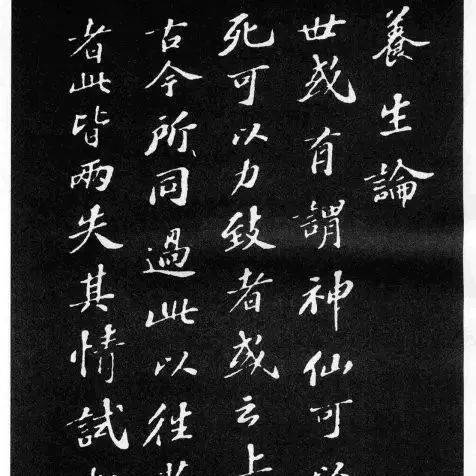 養生論
世或有謂神仙可
死可以力致者或云上
古今所同過此以往
者此皆兩失其情試